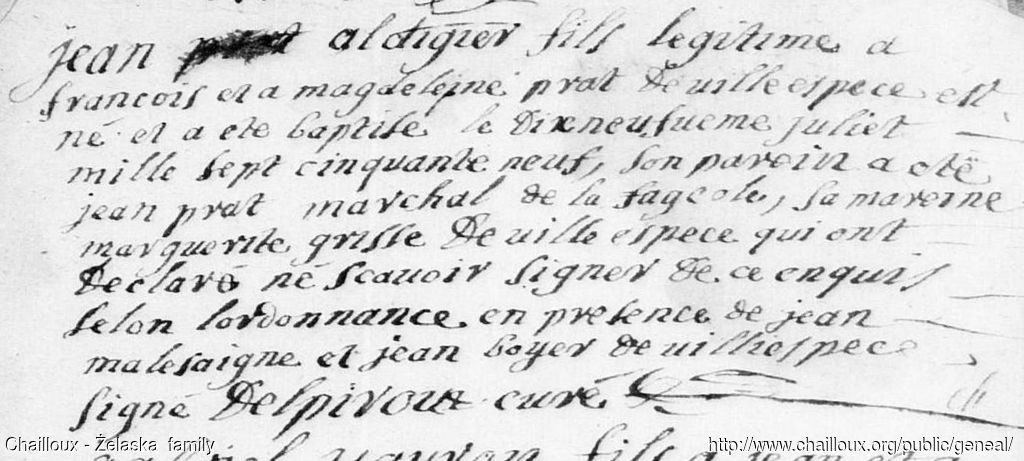 jean aldigier fils legitime a
francois et a magdeleine prat de uilleespece est
né et a eté baptise le dixneufuieme juliet
mille sept cinquante neuf, son parein a eté
jean prat marchal de la fageole, sa mareine
marguerite grisse de uilleespece qui ont
declaré né scauoir signer de ce enquis
selon lordonnance en presence de jean
malesaigne et jean boyer de uilliespece
signé Delpiroux curé
fils a jean et a
Chailloux - Żelaska family
http://www.chailloux.org/public/geneal/